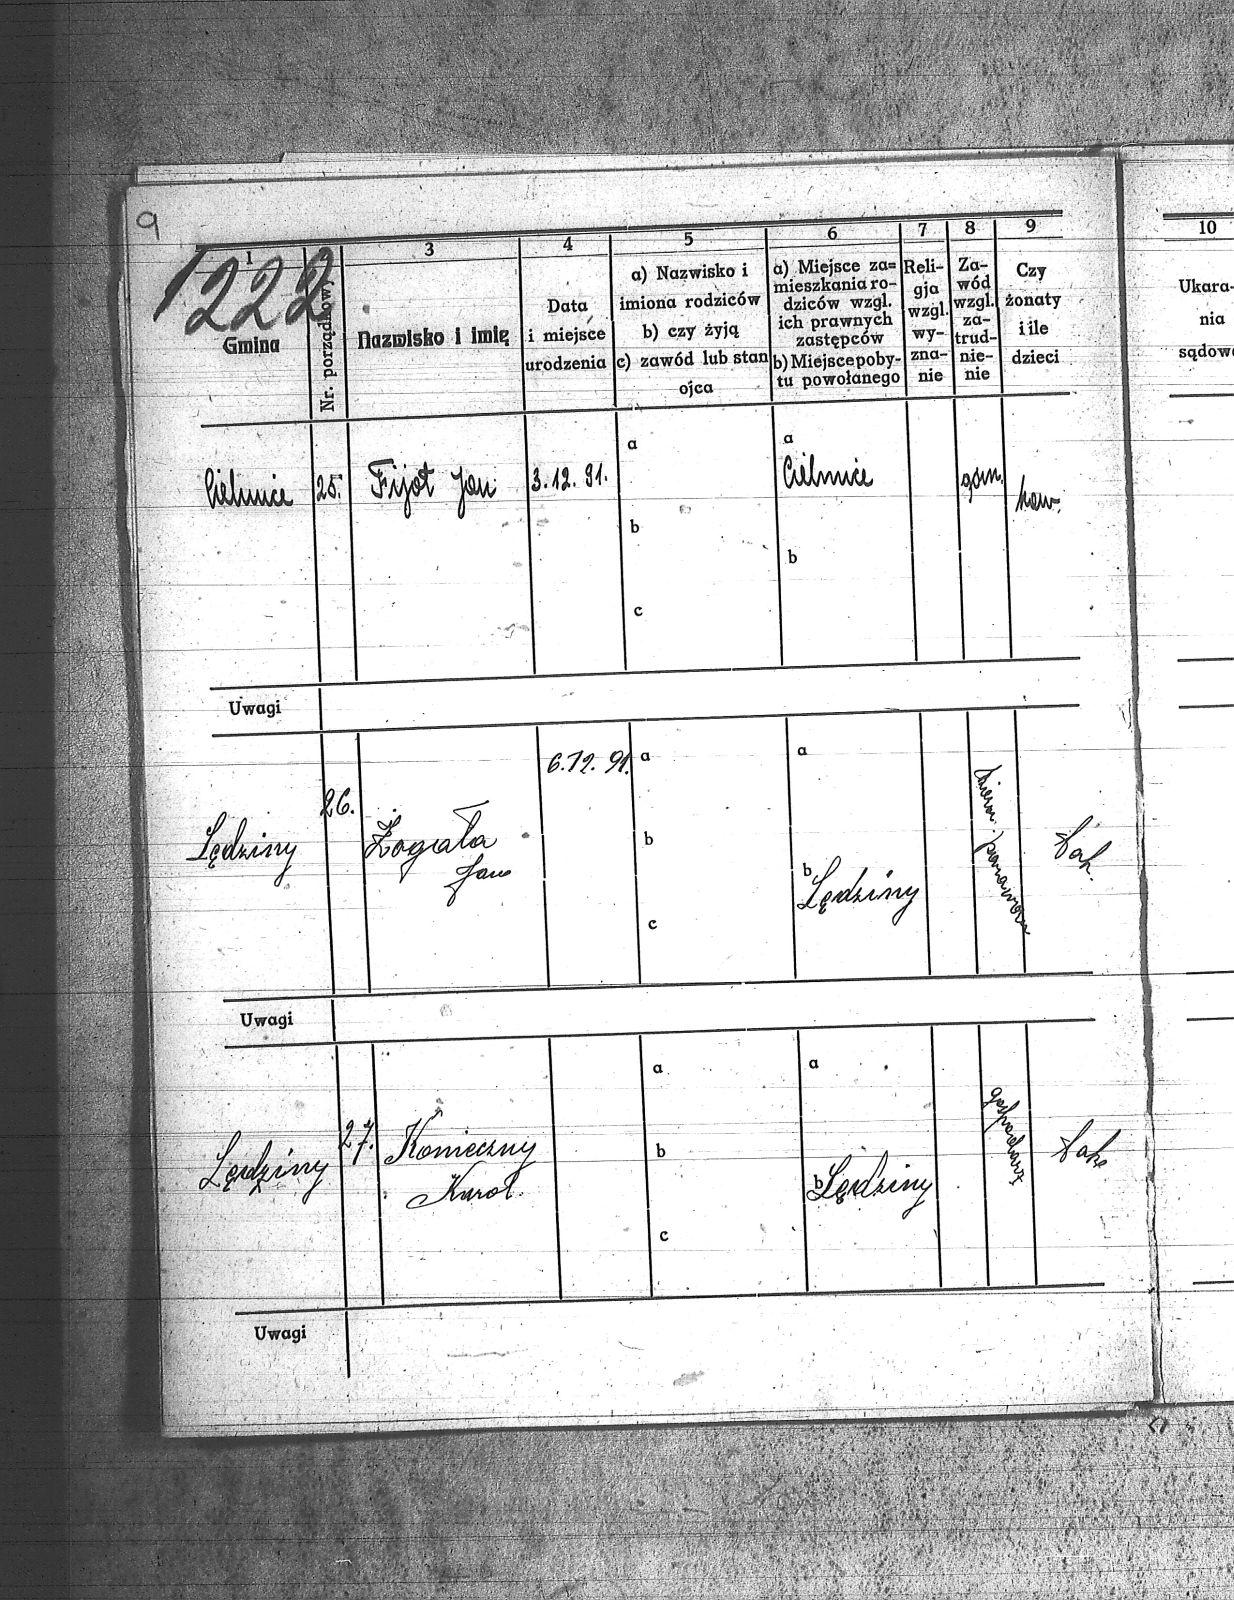 9
1222
1
3
4
5
6
7
8
9
10
Gmina
Nr. porządkowy
Nazwisko i imię
Data
i miejsce
urodzenia
a) Nazwisko i
imiona rodziców
b) czy żyją
c) zawód lub stan
ojca
a) Miejsce za=
mieszkania ro-
dziców wzgl.
ich prawnych
zastępców
b) Miejsce poby-
tu powołanego
Reli-
gja
wzgl.
wy-
zna-
nie
Za-
wód
wzgl.
za-
trud-
nie-
nie
Czy
żonaty
i ile
dzieci
Ukara-
nia
sądowe
Cielmice
25.
Fijoł Jan
3.12.91.
a
b
c
a
Cielmice
b
górn.
kaw.
Uwagi
Lędziny
26.
Żogała
Jan
6.12.91.
a
b
c
a
b
Lędziny
tak.
Uwagi
Lędziny
27.
Konieczny
Karol.
a
b
c
a
b
Lędziny
gospodarz
tak
Uwagi